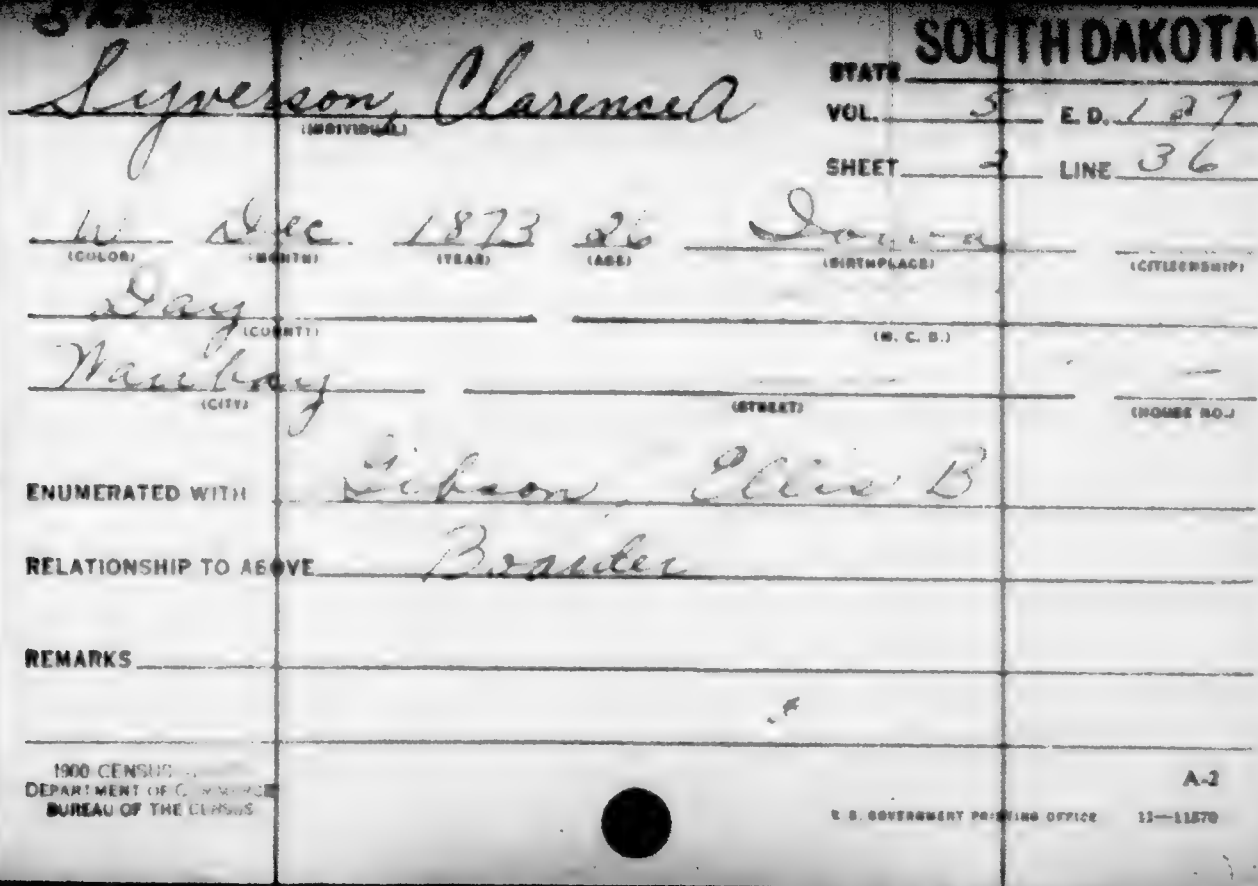 522
SOUTH DAKOTA
STATE
Syverson, Clarence A
(INDIVIDUAL)
VOL. 5 E. D. 127
SHEET 2 LINE 36
W Dec 1873 26 Iowa
(COLOR) (MONTH) (YEAR) (AGE) (BIRTHPLACE) (CITIZENSHIP)
Day
(COUNTY) (M. C. D.)
Waubay
(CITY) (STREET) (HOUSE NO.)
ENUMERATED WITH Gibson, B
RELATIONSHIP TO ABOVE Boarder
REMARKS
1900 CENSUS
DEPARTMENT OF COMMERCE
BUREAU OF THE CENSUS
A-2
U. S. GOVERNMENT PRINTING OFFICE 11—11570